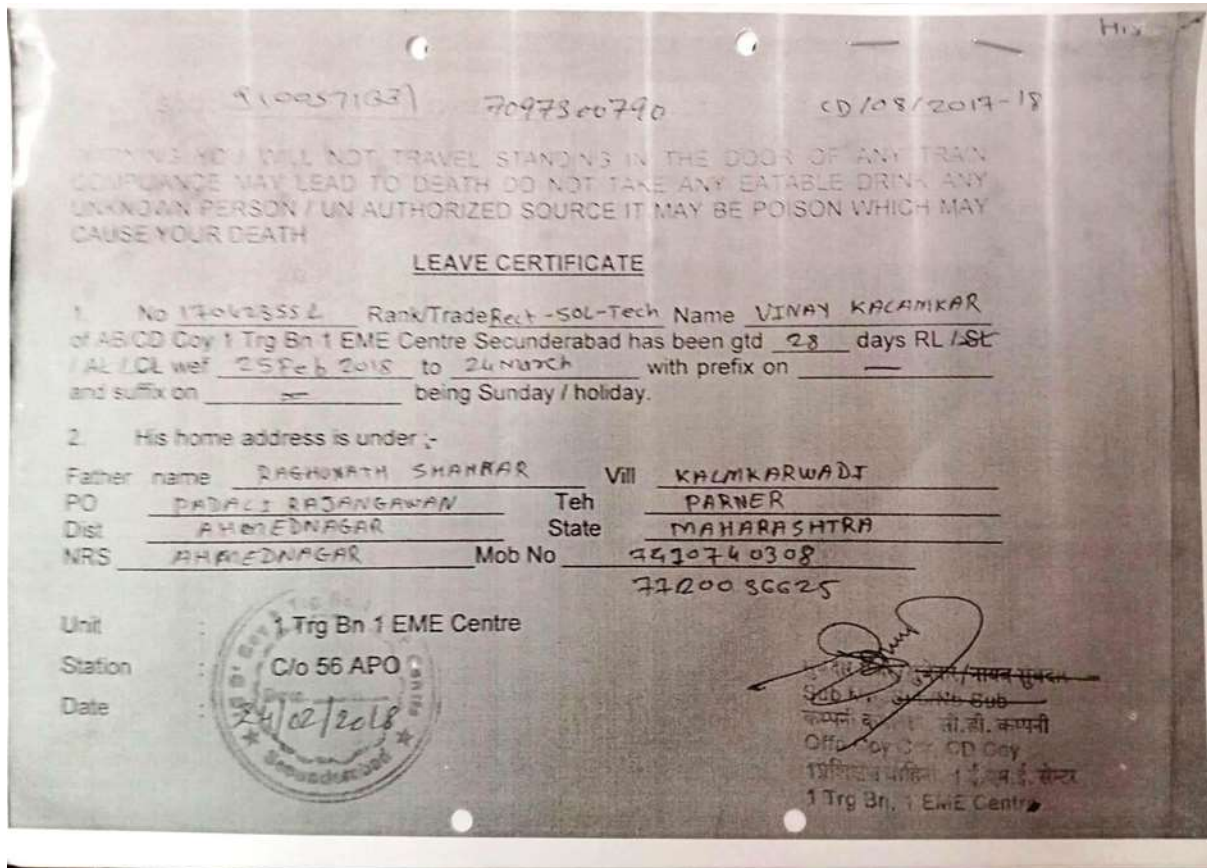 His
9100571331 7097300790 CD/08/2017-18
WARNING YOU WILL NOT TRAVEL STANDING IN THE DOOR OF ANY TRAIN
COMPLIANCE MAY LEAD TO DEATH DO NOT TAKE ANY EATABLE DRINK ANY
UNKNOWN PERSON / UN AUTHORIZED SOURCE IT MAY BE POISON WHICH MAY
CAUSE YOUR DEATH
LEAVE CERTIFICATE
1. No Rank/Trade Rect-SOL-Tech Name VINAY KALAMKAR
of AB/CD Coy 1 Trg Bn 1 EME Centre Secunderabad has been gtd 28 days RL / SL
/ AL / CL wef 25 Feb 2018 to 24 March with prefix on —
and suffix on — being Sunday / holiday.
2. His home address is under :-
Father name RAGHUNATH SHANKAR Vill KALMKARWADI
PO PADALI RAJANGAWAN Teh PARNER
Dist AHMEDNAGAR State MAHARASHTRA
NRS AHMEDNAGAR Mob No
Unit : 1 Trg Bn 1 EME Centre
Station : C/o 56 APO
Date : 24/02/2018
Secunderabad
/नायब सुबेदार
Sub / Nb Sub
कम्पनी सी.डी. कम्पनी
Offg Coy Cdr, CD Coy
1 ई.एम.ई. सेन्टर
1 Trg Bn, 1 EME Centre